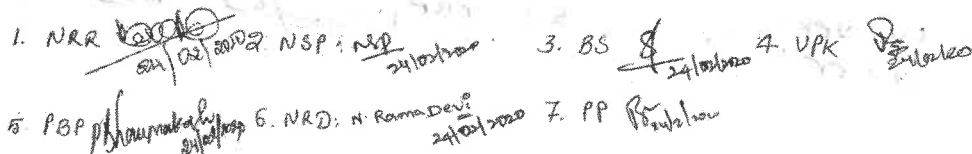 1. NRR 24/02/2020 2. NSP: NSP 24/02/2020 3. BS 24/02/2020 4. VPK 24/02/20
5. PBP 24/02/2020 6. NRD: N. Rama Devi 24/02/2020 7. PP 24/2/2020